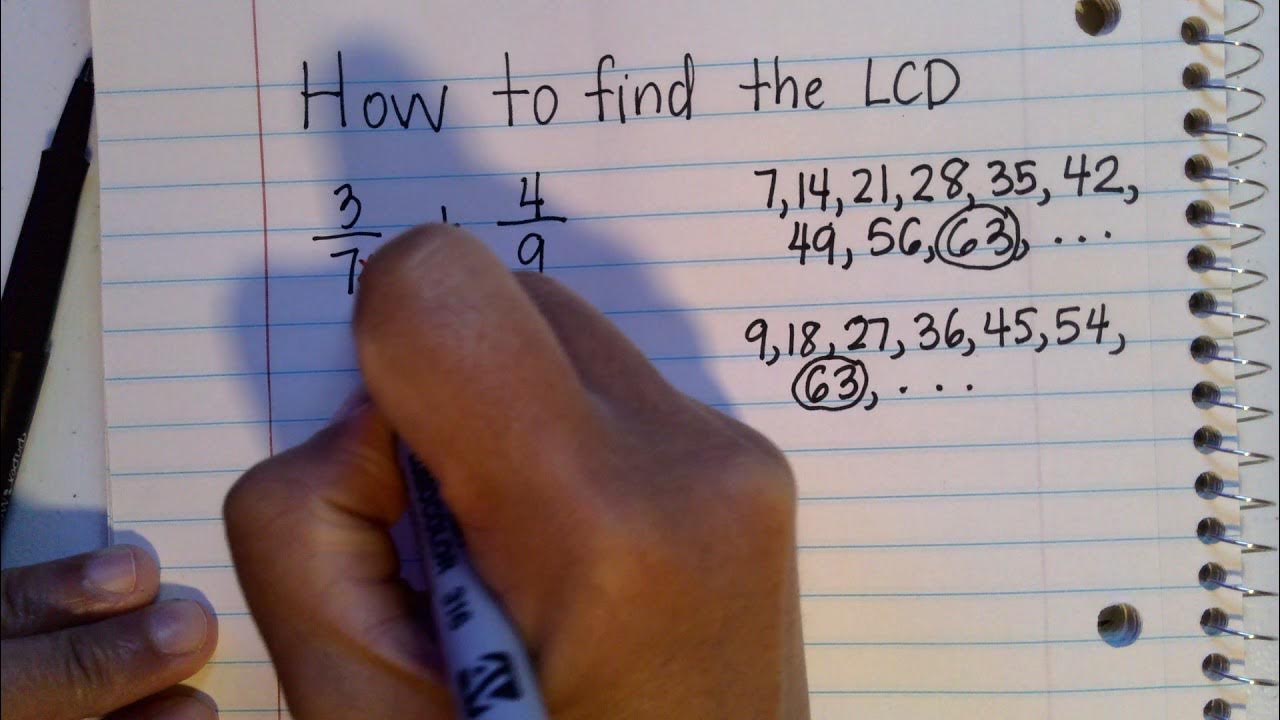 How to find the LCD
3/7 + 4/9
7, 14, 21, 28, 35, 42,
49, 56, 63, ...
9, 18, 27, 36, 45, 54,
63, ...
316